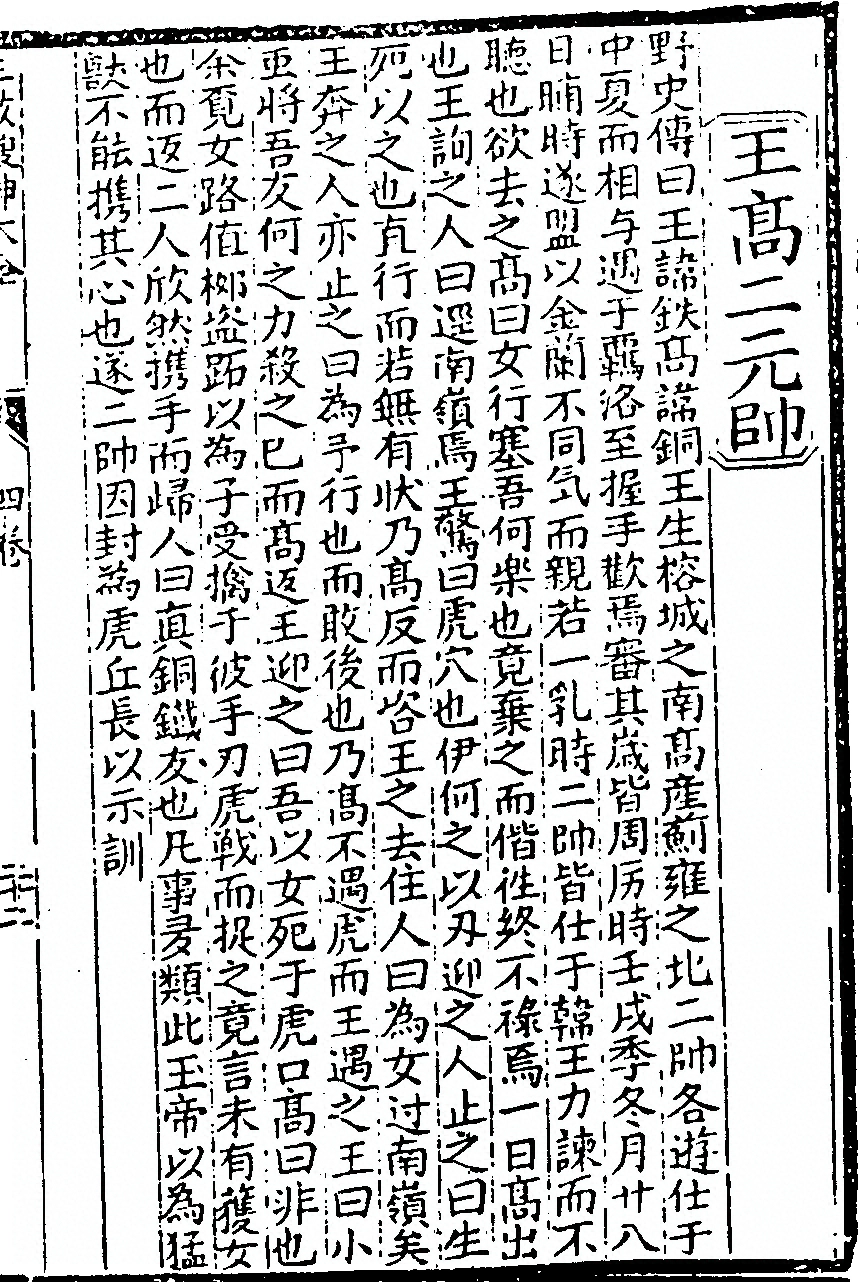 王髙二元帥
野史傳曰王諱鉄髙諱銅王生榕城之南髙産薊雍之北二帥各遊仕于
中夏而相与遇于覊洛至握手歡焉審其嵗皆周厉時壬戌季冬月廿八
日晡時遂盟以金蘭不同気而親若一乳時二帥皆仕于韓王力諫而不
聴也欲去之髙曰女行塞吾何楽也竟棄之而偕徃終不祿焉一日髙出
也王詢之人曰逕南嶺焉王驚曰虎穴也伊何之以刄迎之人止之曰生
死以之也直行而若無有状乃髙反而咨王之去住人曰為女过南嶺矣
王奔之人亦止之曰為予行也而敢後也乃髙不遇虎而王遇之王曰小
亜將吾友何之力殺之已而髙返王迎之曰吾以女死于虎口髙曰非也
余覔女路值梛盗跖以為子受擒于彼手刃虎戦而捉之竟言未有獲女
也而返二人欣然携手而歸人曰真銅鐵友也凡事多類此玉帝以為猛
獣不能携其心也遂二帥因封為虎丘長以示訓
四卷
二十二